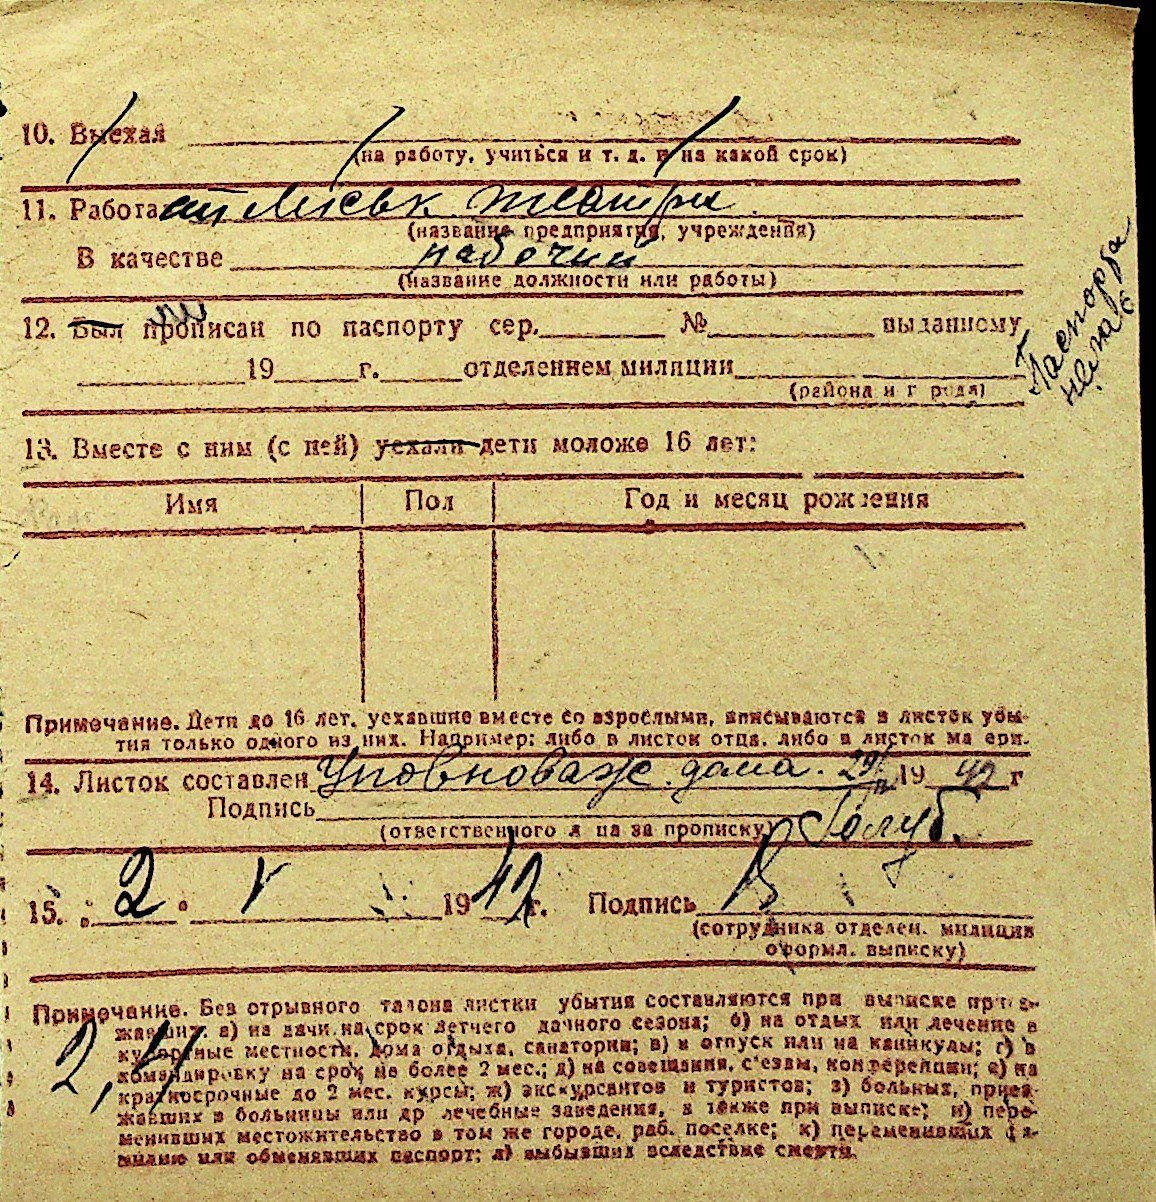 10. Выехал
(на работу, учиться и т. д. и на какой срок)
11. Работа міськ. театри
(название предприятия, учреждения)
В качестве рабочий
(название должности или работы)
12. Был прописан по паспорту сер. № выданному
19 г. отделением милиции
(района и города)
Паспорта
нема є
13. Вместе с ним (с ней) уехали дети моложе 16 лет:
Имя Пол Год и месяц рождения
Примечание. Дети до 16 лет, уехавшие вместе со взрослыми, вписываются в листок убы-
тия только одного из них. Например: либо в листок отца, либо в листок матери.
14. Листок составлен Уповноваж. дома. 29/IV 1942 г
Подпись Голуб.
(ответственного лица за прописку)
15. „2" V 1942 г. Подпись
(сотрудника отделен. милиции
оформл. выписку)
Примечание. Без отрывного талона листки убытия составляются при выписке приез-
жавших: а) на дачи на срок летнего дачного сезона; б) на отдых или лечение в
курортные местности, дома отдыха, санатории; в) в отпуск или на каникулы; г) в
командировку на срок не более 2 мес.; д) на совещания, с'езды, конференции; е) на
краткосрочные до 2 мес. курсы; ж) экскурсантов и туристов; з) больных, приез-
жавших в больницы или др лечебные заведения, а также при выписке; и) пере-
менивших местожительство в том же городе, раб. поселке; к) переменивших фа-
милию или обменявших паспорт; л) выбывших вследствие смерти.
2,4